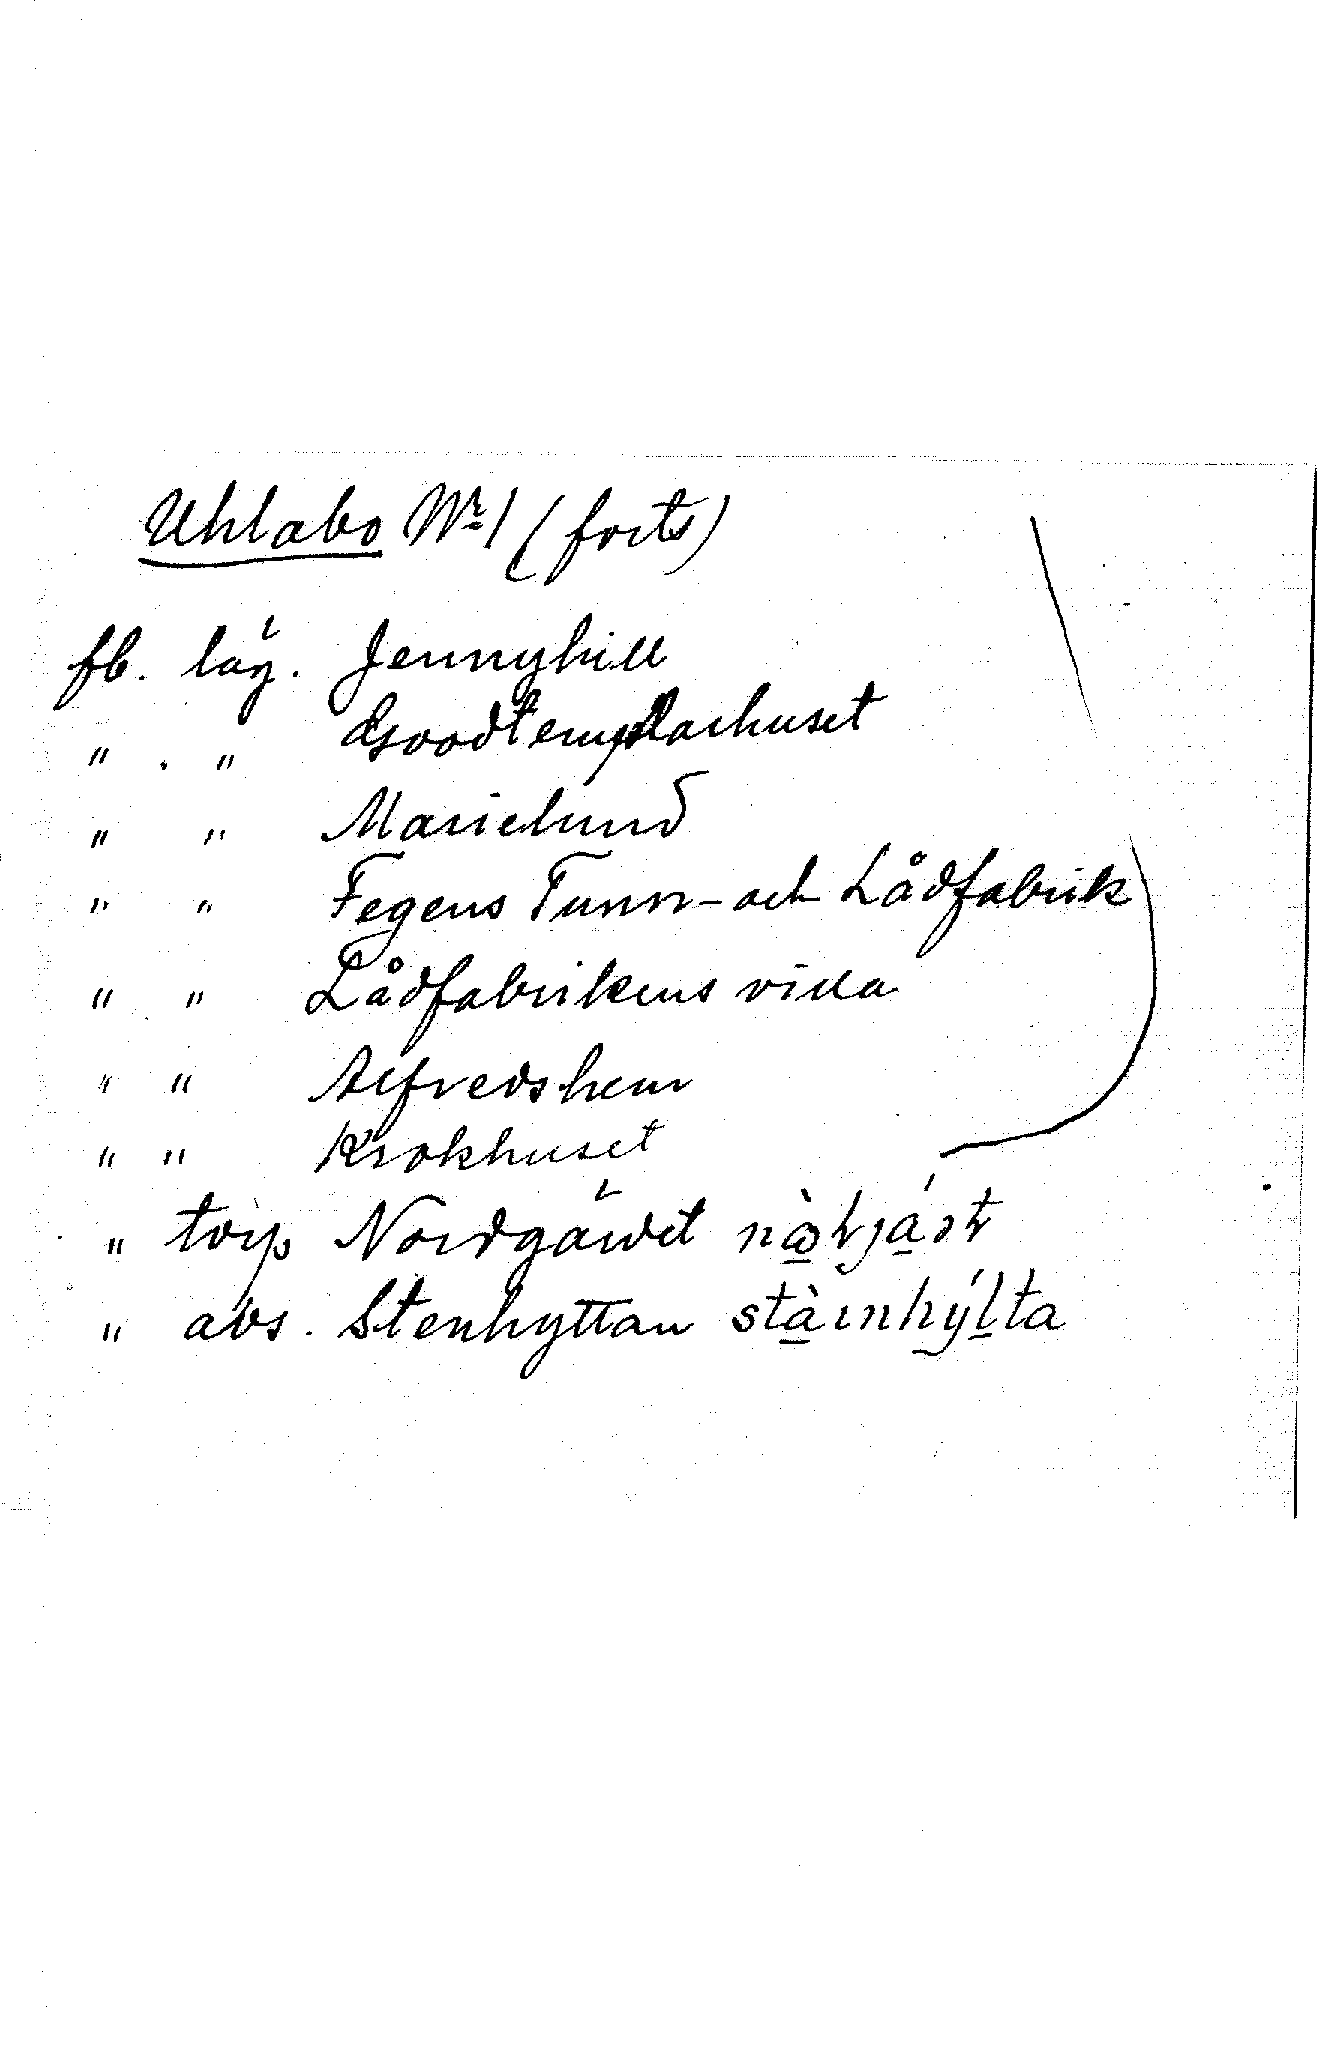 Uhlabo Nr 1 (forts)
fb. läg. Jennyhill
" . " Goodtemplarhuset
" " Marielund
" " Fegens Tunn- och Lådfabrik
" " Lådfabrikens villa
" " Alfredshem
" " Krokhuset
" torp Nordgärdet
" avs. Stenhyttan stàinhýlta